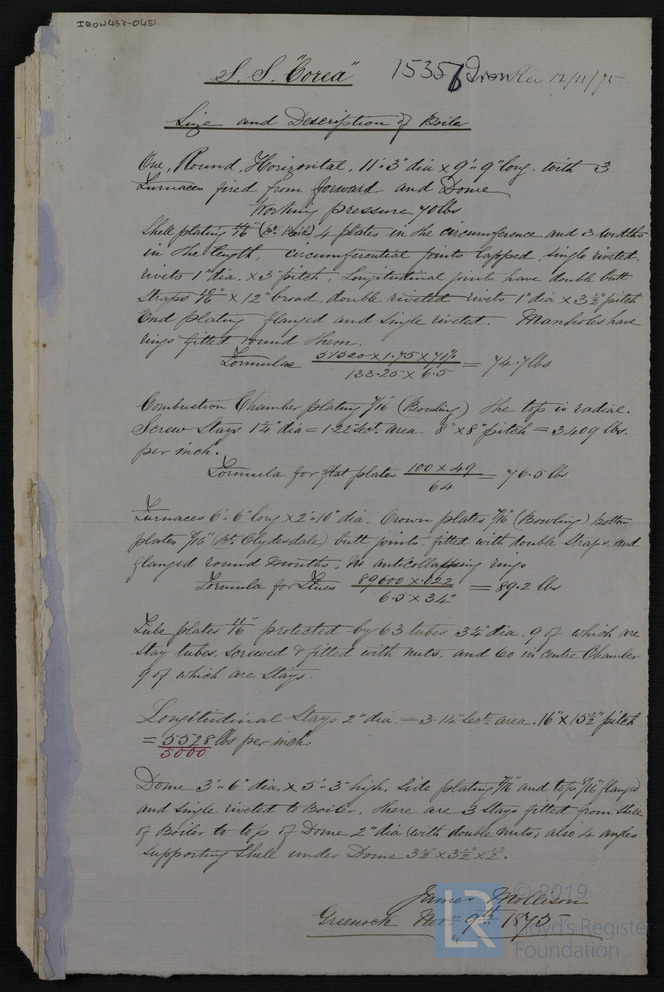 IRON463-0451
S. S. "Corea" 15356 Iron Rec 12/11/75
Size and Description of Boiler
One, Round, Horizontal, 11'-3" dia x 9'-9" long. with 3
Furnaces fired from forward and Dome
Working pressure 70lbs
Shell plating 11/16" 4 plates in the circumference and 3 widths
in the length, circumferential joints lapped, single riveted,
rivets 1" dia. x 3" pitch, Longitudinal joints have double butt
Straps x 12" broad, double riveted rivets 1" dia x 3½" pitch
End plating flanged and single riveted. Manholes have
rings fitted round them.
Formulae 51520 x 1.75 x 71% / 133.25 x 6.5 = 74.7 lbs
Combustion Chamber plating 7/16 (Bowling) the top is radial.
Screw Stays 1¼" dia = 1.22 Sect. area 8" x 8" pitch = 3409 lbs.
per inch.
Formula for flat plates 100 x 49 / 64 = 76.5 lbs
Furnaces 6'-6" long x 2'-10" dia. Crown plates 7/16 (Bowling) bottom
plates 7/16 (Clydesdale) butt joints fitted with double Straps, and
flanged round mouths, No anticollapsing rings
Formula for Flues 89600 x .022 / 6.5 x 34" = 89.2 lbs
Tube plates 11/16" protected by 63 tubes 3¼" dia. 9 of which are
Stay tubes, screwed & fitted with nuts, and 60 in centre Chamber
9 of which are Stays.
Longitudinal Stays 2" dia. = 3.14" Sect. area. 16" x 15½" pitch
= 5528 lbs per inch.
5000
Dome 3'-6" dia. x 5'-3" high, Side plating 7/16 and top 9/16" flanged
and single riveted to Boiler. there are 3 Stays fitted from Shell
of Boiler to top of Dome 2" dia (with double nuts) also 4 angles
supporting Shell under Dome 3½ x 3½ x ½".
James Mollison
Greenock Nov. 9th 1875
© 2019
LR Lloyd's Register
Foundation